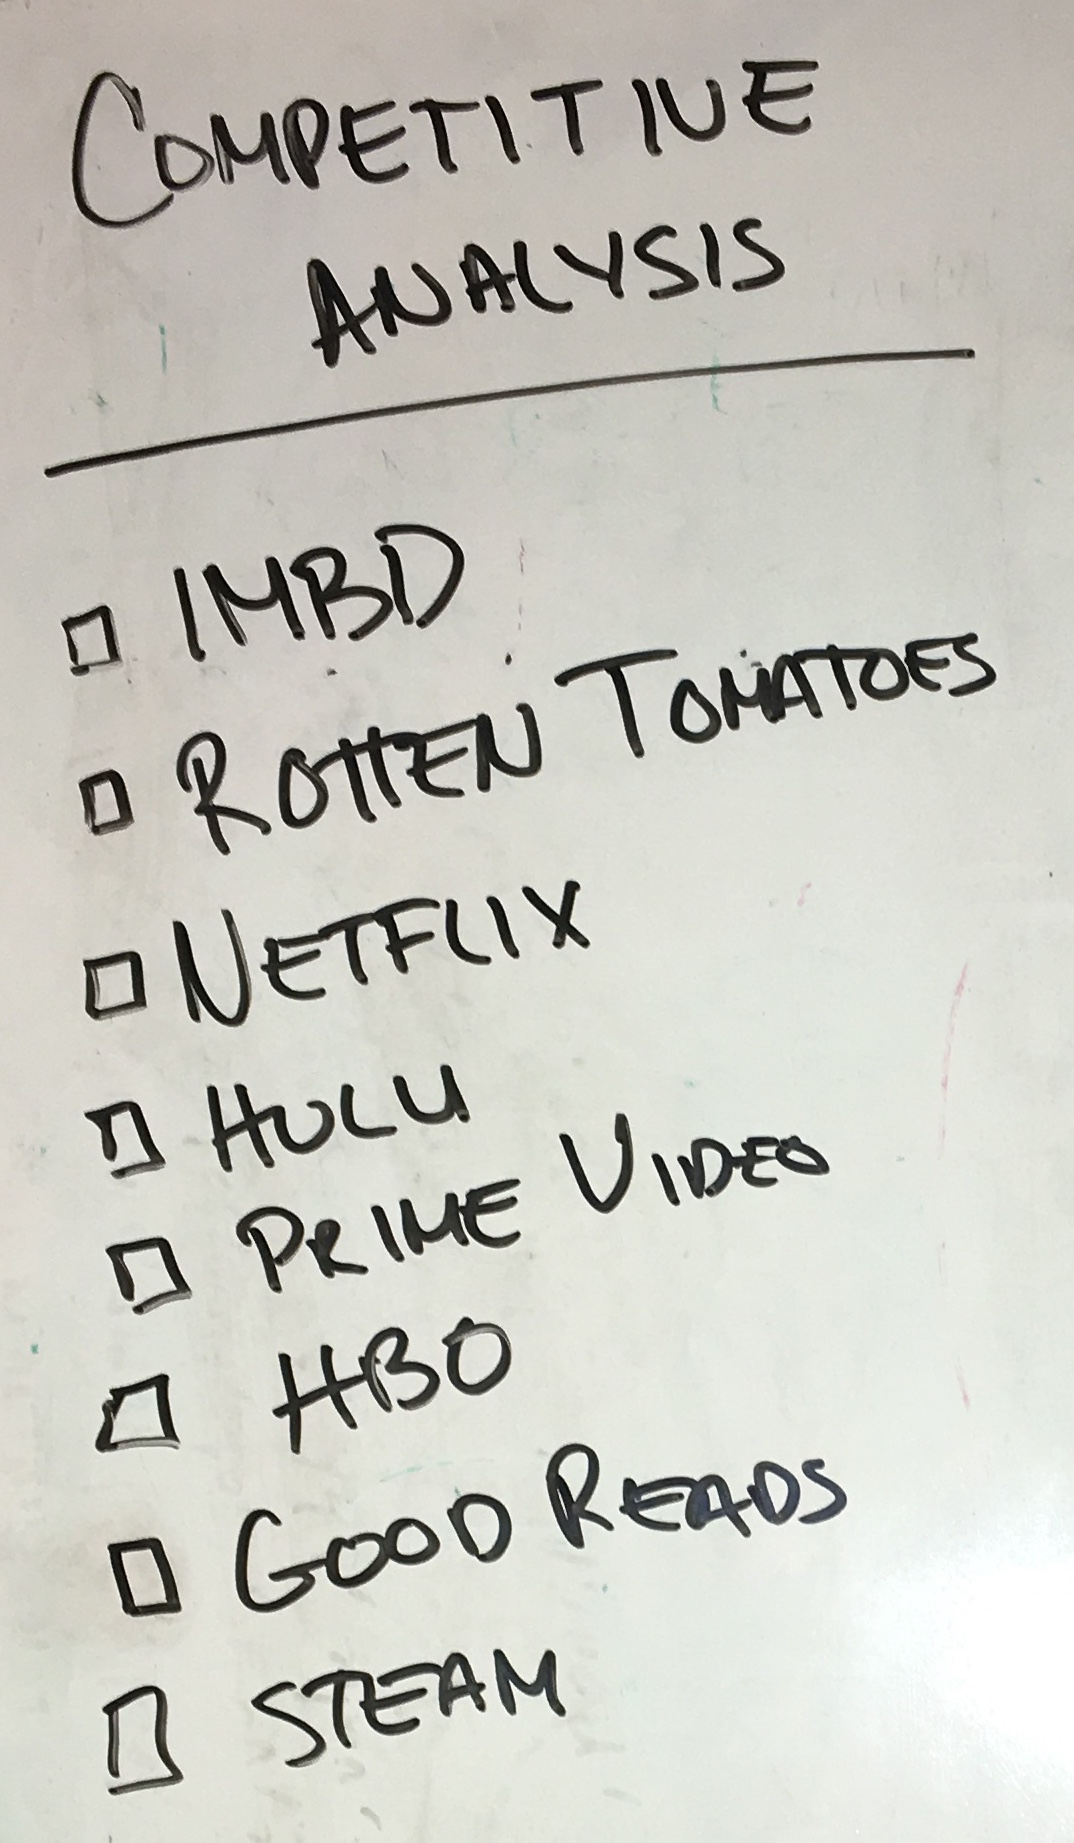 COMPETITIVE
ANALYSIS
IMBD
ROTTEN TOMATOES
NETFLIX
HULU
PRIME VIDEO
HBO
GOOD READS
STEAM